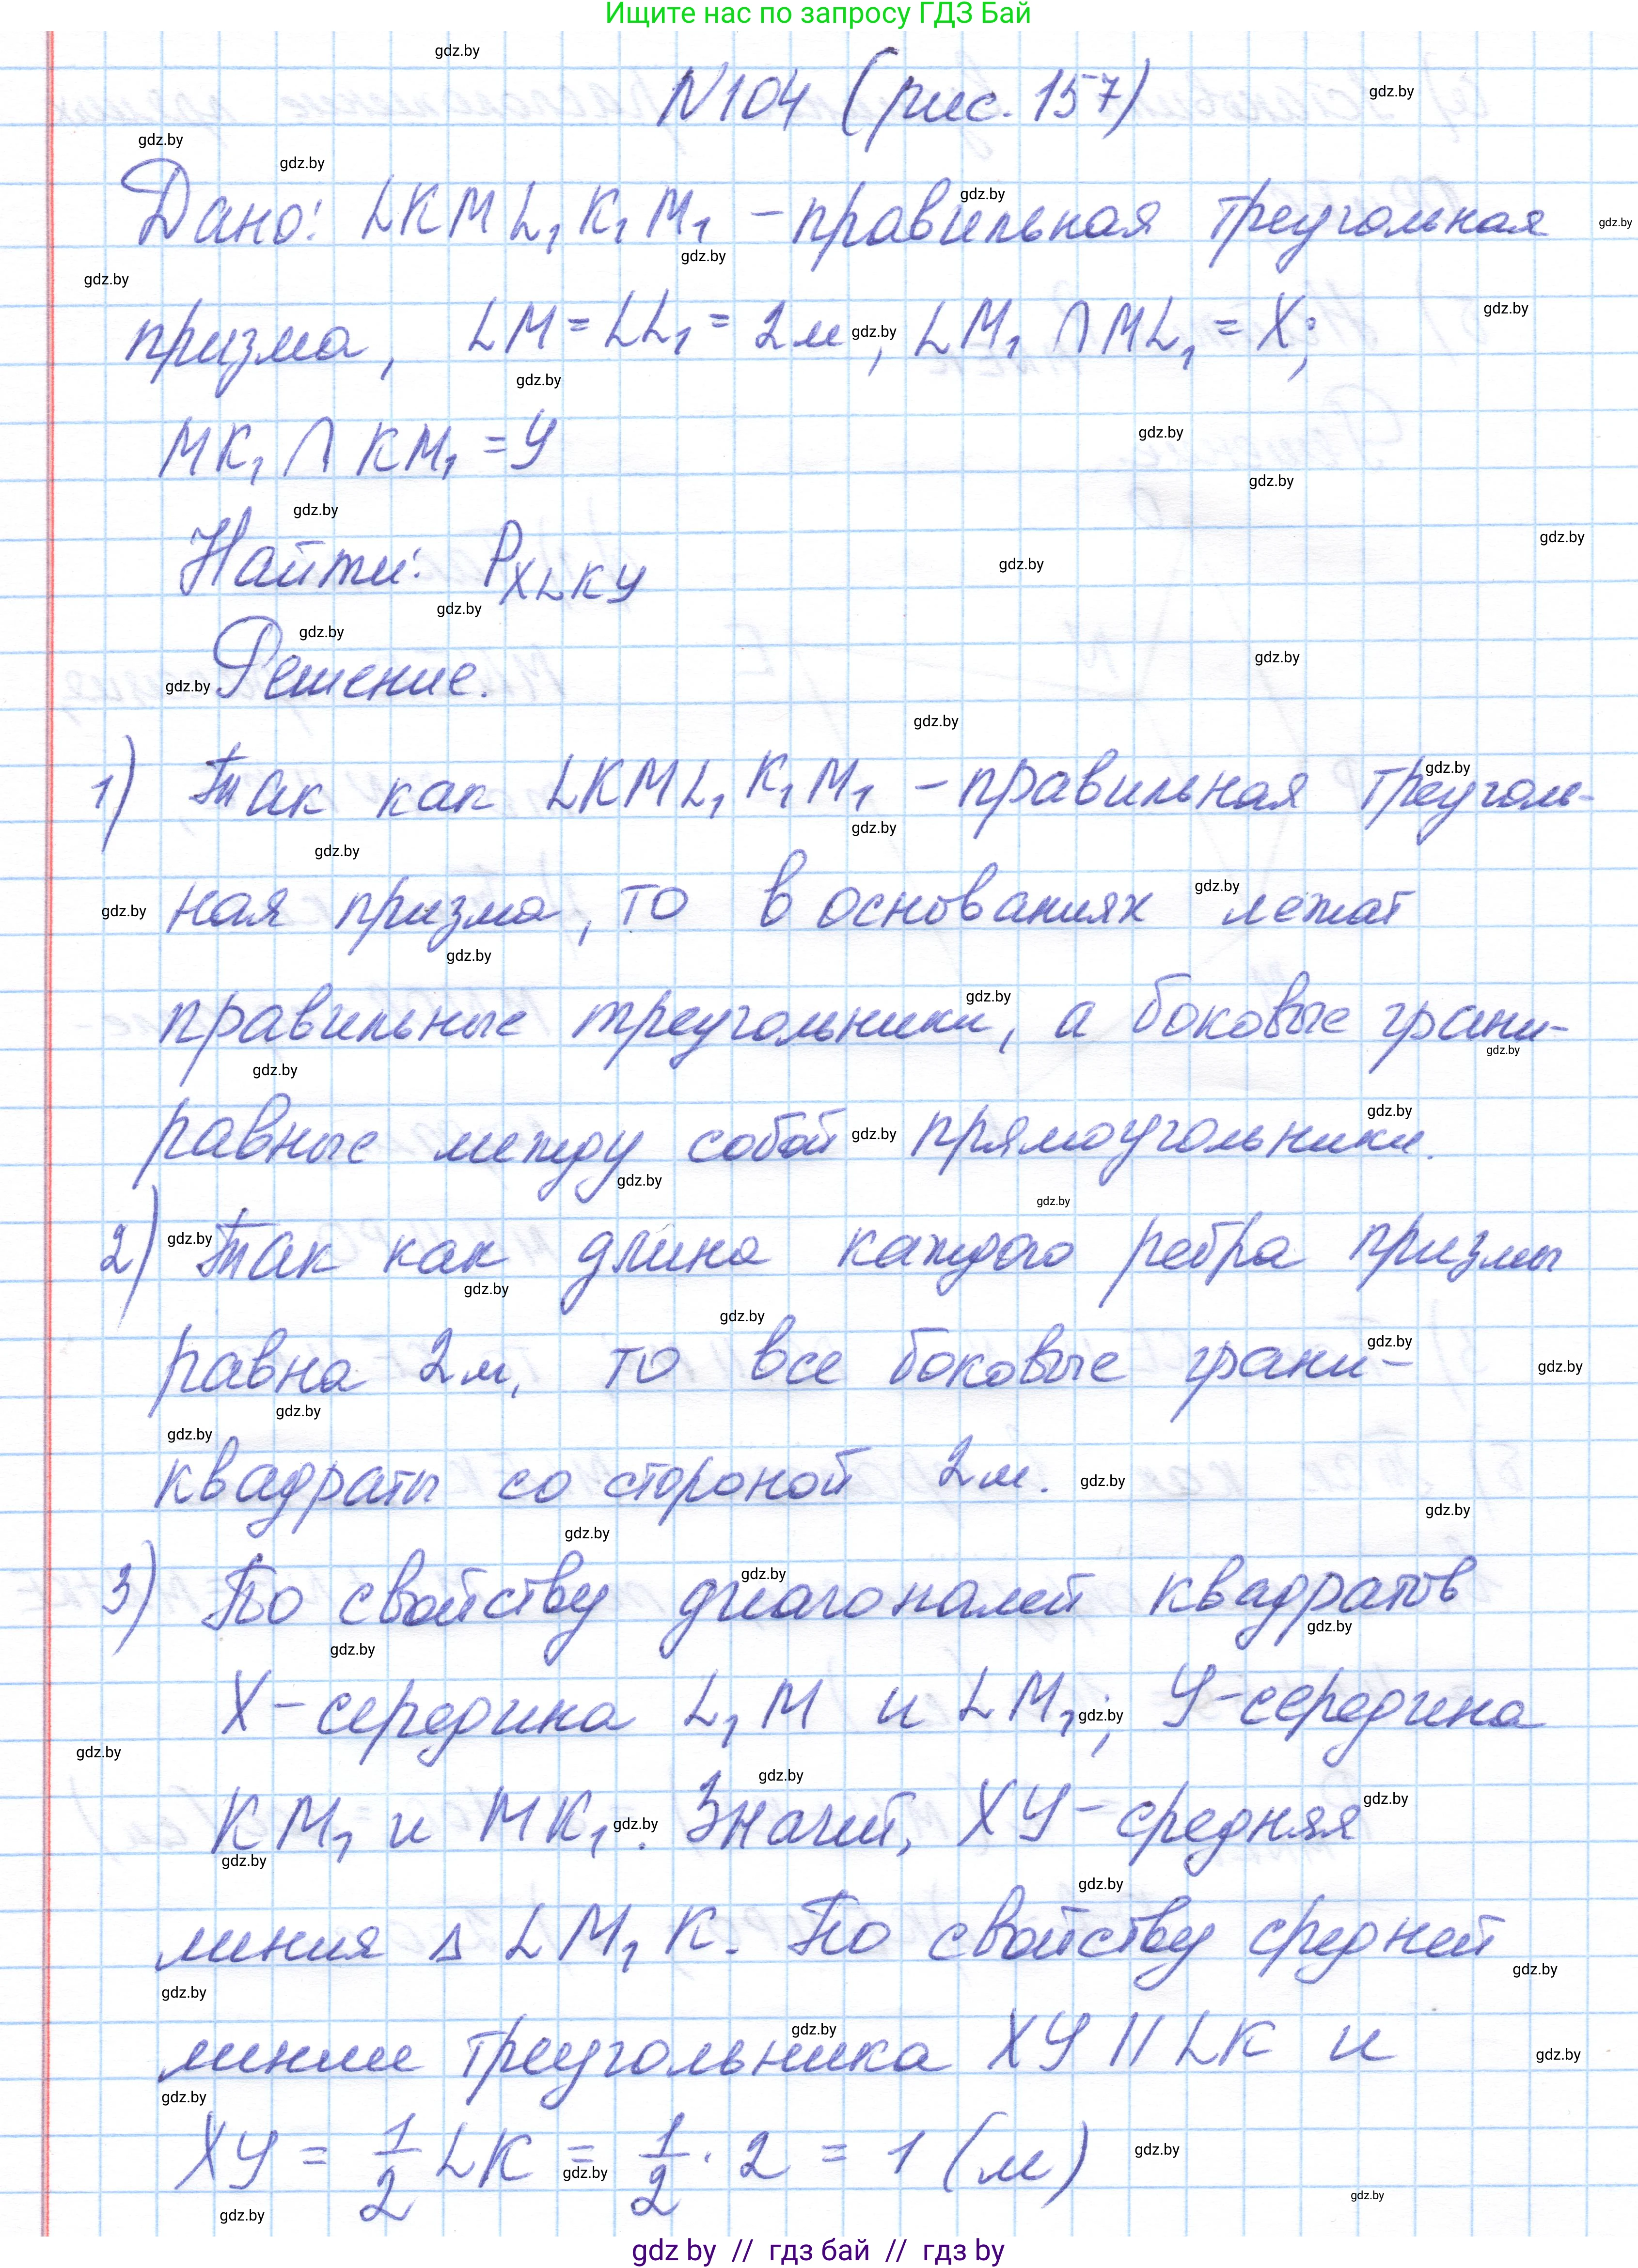 Ищите нас по запросу ГДЗ Бай
N104 (рис. 157)
Дано: LKML₁K₁M₁ - правильная треугольная
призма, LM = LL₁ = 2м, LM₁ ∩ ML₁ = X;
MK₁ ∩ KM₁ = У
Найти: P_XLKУ
Решение.
1) Так как LKML₁K₁M₁ - правильная треуголь-
ная призма, то в основаниях лежат
правильные треугольники, а боковые грани-
равные между собой прямоугольники.
2) Так как длина каждого ребра призмы
равна 2м, то все боковые грани-
квадраты со стороной 2м.
3) По свойству диагоналей квадратов
X - середина L₁M и LM₁; У - середина
KM₁ и MK₁. Значит, XУ - средняя
линия Δ LM₁K. По свойству средней
линии треугольника XУ || LK и
XУ = 1/2 LK = 1/2 · 2 = 1 (м)
gdz by // гдз бай // гдз by